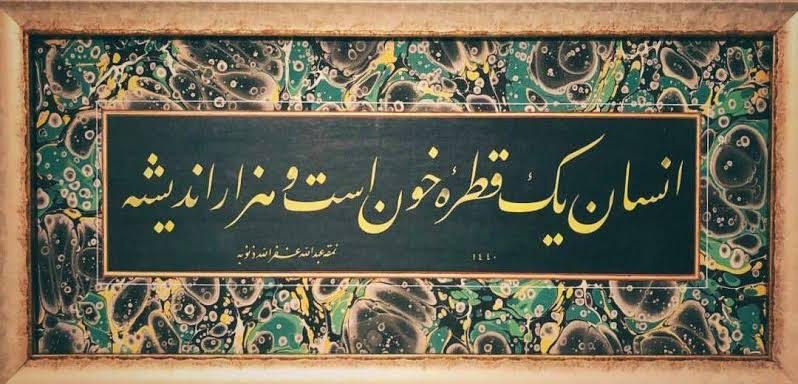 انسان یک قطرۀ خون است و هزار اندیشه
نمقه عبدالله غفر الله ذنوبه
١٤٤٠